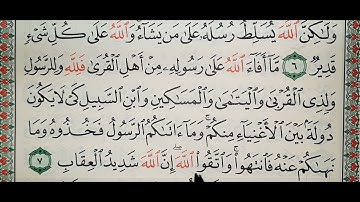 وَلَٰكِنَّ ٱللَّهَ يُسَلِّطُ رُسُلَهُۥ عَلَىٰ مَن يَشَآءُ وَٱللَّهُ عَلَىٰ كُلِّ شَىْءٍ
قَدِيرٌ ٦ مَّآ أَفَآءَ ٱللَّهُ عَلَىٰ رَسُولِهِۦ مِنْ أَهْلِ ٱلْقُرَىٰ فَلِلَّهِ وَلِلرَّسُولِ
وَلِذِى ٱلْقُرْبَىٰ وَٱلْيَتَٰمَىٰ وَٱلْمَسَٰكِينِ وَٱبْنِ ٱلسَّبِيلِ كَىْ لَا يَكُونَ
دُولَةًۢ بَيْنَ ٱلْأَغْنِيَآءِ مِنكُمْ ۚ وَمَآ ءَاتَىٰكُمُ ٱلرَّسُولُ فَخُذُوهُ وَمَا
نَهَىٰكُمْ عَنْهُ فَٱنتَهُوا۟ ۚ وَٱتَّقُوا۟ ٱللَّهَ ۖ إِنَّ ٱللَّهَ شَدِيدُ ٱلْعِقَابِ ٧